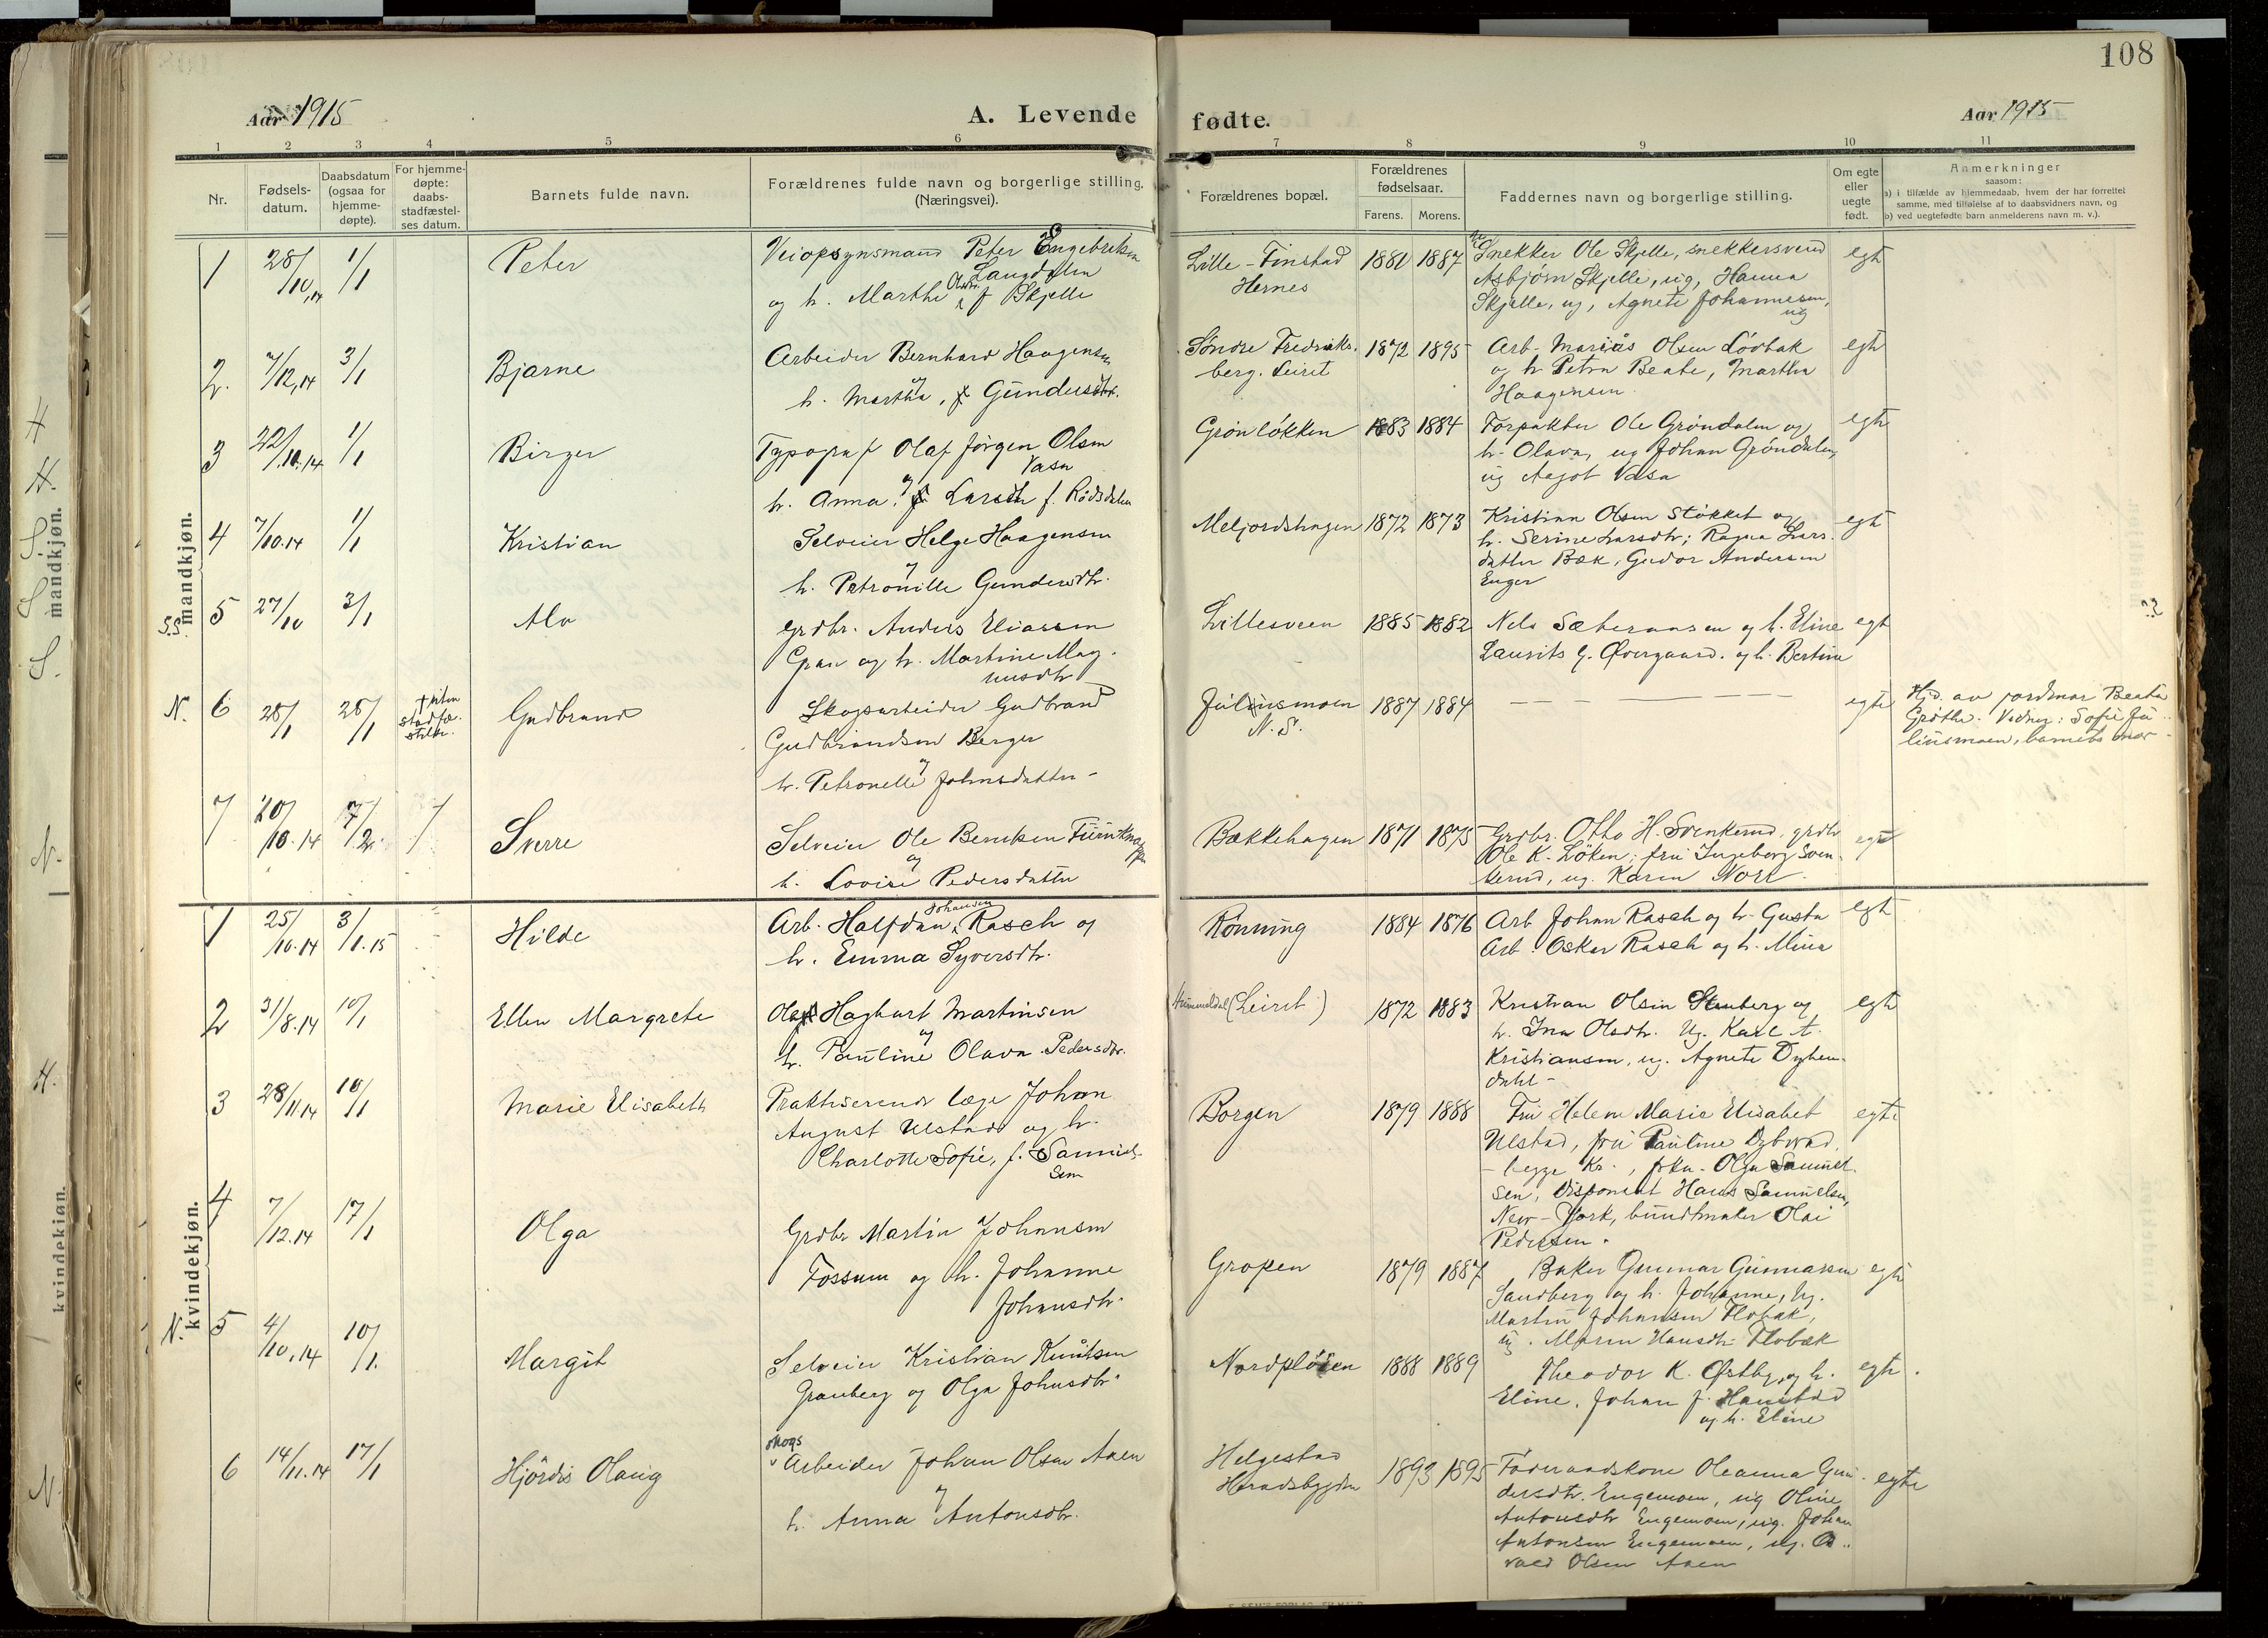 108
Aar 1915
A. Levende
fødte.
Aar 1915
1 2 3 4 5 6 7 8 9 10 11
Nr.
Fødsels-
datum.
Daabsdatum
(ogsaa for
hjemme-
døpte).
For hjemme-
døpte:
daabs-
stadfæstel-
ses datum.
Barnets fulde navn.
Forældrenes fulde navn og borgerlige stilling.
(Næringsvei).
Forældrenes bopæl.
Forældrenes
fødselsaar.
Farens. Morens.
Faddernes navn og borgerlige stilling.
Om egte
eller
uegte
født.
Anmerkninger
saasom:
a) i tilfælde av hjemmedaab, hvem der har forrettet
samme, med tilføielse af to daabsvidners navn, og
b) ved uegtefødte barn anmelderens navn m. v.).
mandkjøn.
1 28/10,14 1/1 Peter
Veiopsynsmand Peter Engebretsen
Langdalen
og h. Marthe Olsdtr. f Skjelle
Lille-Finstad
Hernes
1881 1887
Snekker Ole Skjelle, snekkersvend
Asbjørn Skjelle, ug, Hanna
Skjelle, ug, Agnete Johannesen,
ug
egte
2. 7/12,14 3/1 Bjarne
Arbeider Bernhard Haagensen
og
h. Martha, Gundersdtr.
Søndre Fredriks-
berg. Leiret
1872 1895
Arb. Mariås Olsen Lövbak
og h Petra Beate, Martha
Haagensen
egte
3 22/10.14 1/1 Birger
Typograf Olaf Jörgen Olsen
Vasa
og
h. Anna, Larsdtr f. Rödsdalen
Grönlökken
1883 1884
Forpakter Ole Gröndalen og
h. Olava, ug Johan Gröndalen,
ug Aagot Vasa
egte
4 7/10.14 1/1 Kristian
Selveier Helge Haagensen
og
h. Petronille Gundersdtr.
Meljordshagen
1872 1873
Kristian Olsen Stökket og
h. Serine Larsdtr; Ragna Lars-
datter Bæk, Gudor Andersen
Enger
egte
S.S. 5 27/10 3/1 Alv
Grdbr. Anders Eliassen
Gran og h. Martine Mag-
nusdtr
Lillesveen
1885 1882
Nels Sæteransen og h. Eline
Laurits G. Øvergaard. og h. Bertine
egte
N. 6 28/1 28/1
† uten
stadfæ-
stelse.
Gudbrand
Skogsarbeider Gudbrand
Gudbrandsen Berger
og
h. Petronelle Johnsdatter -
Juliusmoen
N. S.
1887 1884
egte
Hjd. av jordmor Beata
Grøtha. Vidner: Sofie Ju-
liusmoen, barnets mor -
7 20/10.14 7/2. / Sverre
Selveier Ole Berntsen Furuknappen
og
h. Lovise Pedersdatter
Bækkehagen
1871 1875
Grdbr. Otto H. Svenkerud, grdbr
Ole K. Löken; fru Ingeborg Sven-
kerud, ug. Karen Nore.
egte
kvindekjøn.
1 25/10.14 3/1.15 Hilde
Johansen
Arb. Halfdan Rasch og
h. Emma Syversdtr.
Rønning
1884 1876
Arb Johan Rasch og h. Gusta
Arb. Oskar Rasch og h. Mina
egte
2 31/8.14 10/1 Ellen Margrete
Olaf Hagbart Martinsen
og
h. Pauline Olava Pedersdtr.
Hummeldal (Leiret)
1872 1883
Kristian Olsen Stenberg og
h. Ina Olsdtr. Ug. Karl A.
Kristiansen, ug. Agnete Dyhen-
dahl -
egte
3 28/11.14 10/1 Marie Elisabeth
Praktiserende læge Johan
August Ulstad og h.
Charlotte Sofie, f. Samuel-
sen
Borgen
1879 1888
Fru Helene Marie Elisabet
Ulstad, fru Pauline Dybwad,
- begge Kr., frkn. Olga Samuel-
sen, Disponent Hans Samuelsen,
New-York, bundtmaker Olai
Pedersen.
egte
4 7/12.14 17/1 Olga
Grdbr Martin Johansen
Fossum og h. Johanne
Johansdtr.
Gropen
1879 1887
Baker Gunnar Gunnarsen
Sandberg og h. Johanne, Ug.
Martin Johansen Flobæk,
ug. Maren Hansdtr Flobæk
egte
N. 5 4/10,14 10/1. Margit
Selveier Kristian Knutsen
Granberg og Olga Johnsdtr.
Nordpløsen
1888 1889
Theodor K. Østby, og h.
Eline, Johan J. Hanstad
og h. Eline
egte.
6 14/11.14 17/1 Hjördis Olaug
skogs
Arbeider Johan Olsen Aaen
og
h. Anna Antonsdtr.
Helgestad
Heradsbygden
1893 1895
Föderaadskone Oleanna Gun-
dersdtr. Engemoen, ug Oline
Antonsdtr Engemoen, ug. Johan
Antonsen Engemoen, ug.
Olsen Aaen
egte
H
H.
S.
S
S.
N.
H.
N.
mandkjøn.
kvindekjøn.